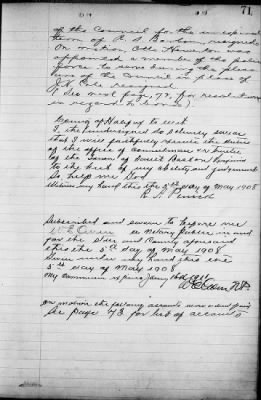 71
of the Council for the unexpired
term of R. L. resigned
On motion Otho was
appointed a member of the
of the Council in place of
J. R. Cole resigned
(See next page, 72, for resolution
in regard to bond).
County of Halifax to wit
I, the undersigned do solemnly swear
that I will faithfully execute the duties
of the office of Councilman or Trustee
of the Town of South Boston Virginia
to the best of my ability and judgement
So help me God
Witness my hand this the 5th day of May 1908
R. L.
Subscribed and sworn to before me
W E Owen a Notary Public in and
for the State and County aforesaid
this the 5th day of May 1908
Given under my hand this the
5th day of May 1908
My Commission expires Jany 16th 1911
W E Owen N.P.
On motion the following accounts was ordered paid
See Page 73 for list of accounts